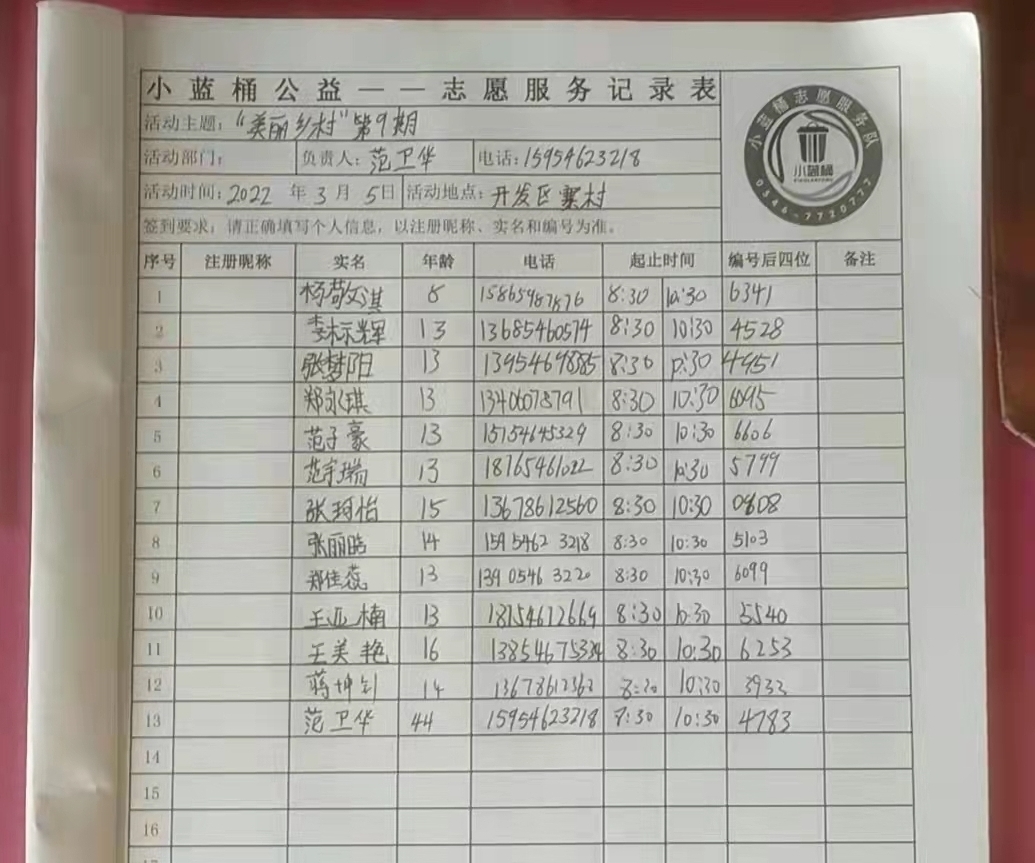 小蓝桶公益——志愿服务记录表
活动主题：“美丽乡村”第9期
活动部门： 负责人：范卫华 电话：15954623218
活动时间：2022 年 3 月 5日 活动地点：开发区寨村
签到要求：请正确填写个人信息，以注册昵称、实名和编号为准。
小蓝桶志愿服务队
小蓝桶
0546-7720777
序号 注册昵称 实名 年龄 电话 起止时间 编号后四位 备注
1 杨敬淇 8 15865987876 8:30 10:30 6341
2 李标辉 13 13685460574 8:30 10:30 4528
3 张梦阳 13 13954698885 8:30 10:30 4951
4 郑永琪 13 13406078791 8:30 10:30 6095
5 范子豪 13 15754645329 8:30 10:30 6606
6 范宇瑞 13 18765461022 8:30 10:30 5799
7 张珂怡 15 13678612560 8:30 10:30 0808
8 张丽皓 14 159 5462 3218 8:30 10:30 5103
9 郑佳蕊 13 139 0546 3220 8:30 10:30 6099
10 王亚楠 13 18754612669 8:30 10:30 5540
11 王美艳 16 13854675334 8:30 10:30 6253
12 蒋坤钊 14 13678612362 8:30 10:30 3933
13 范卫华 44 15954623218 8:30 10:30 4783
14
15
16